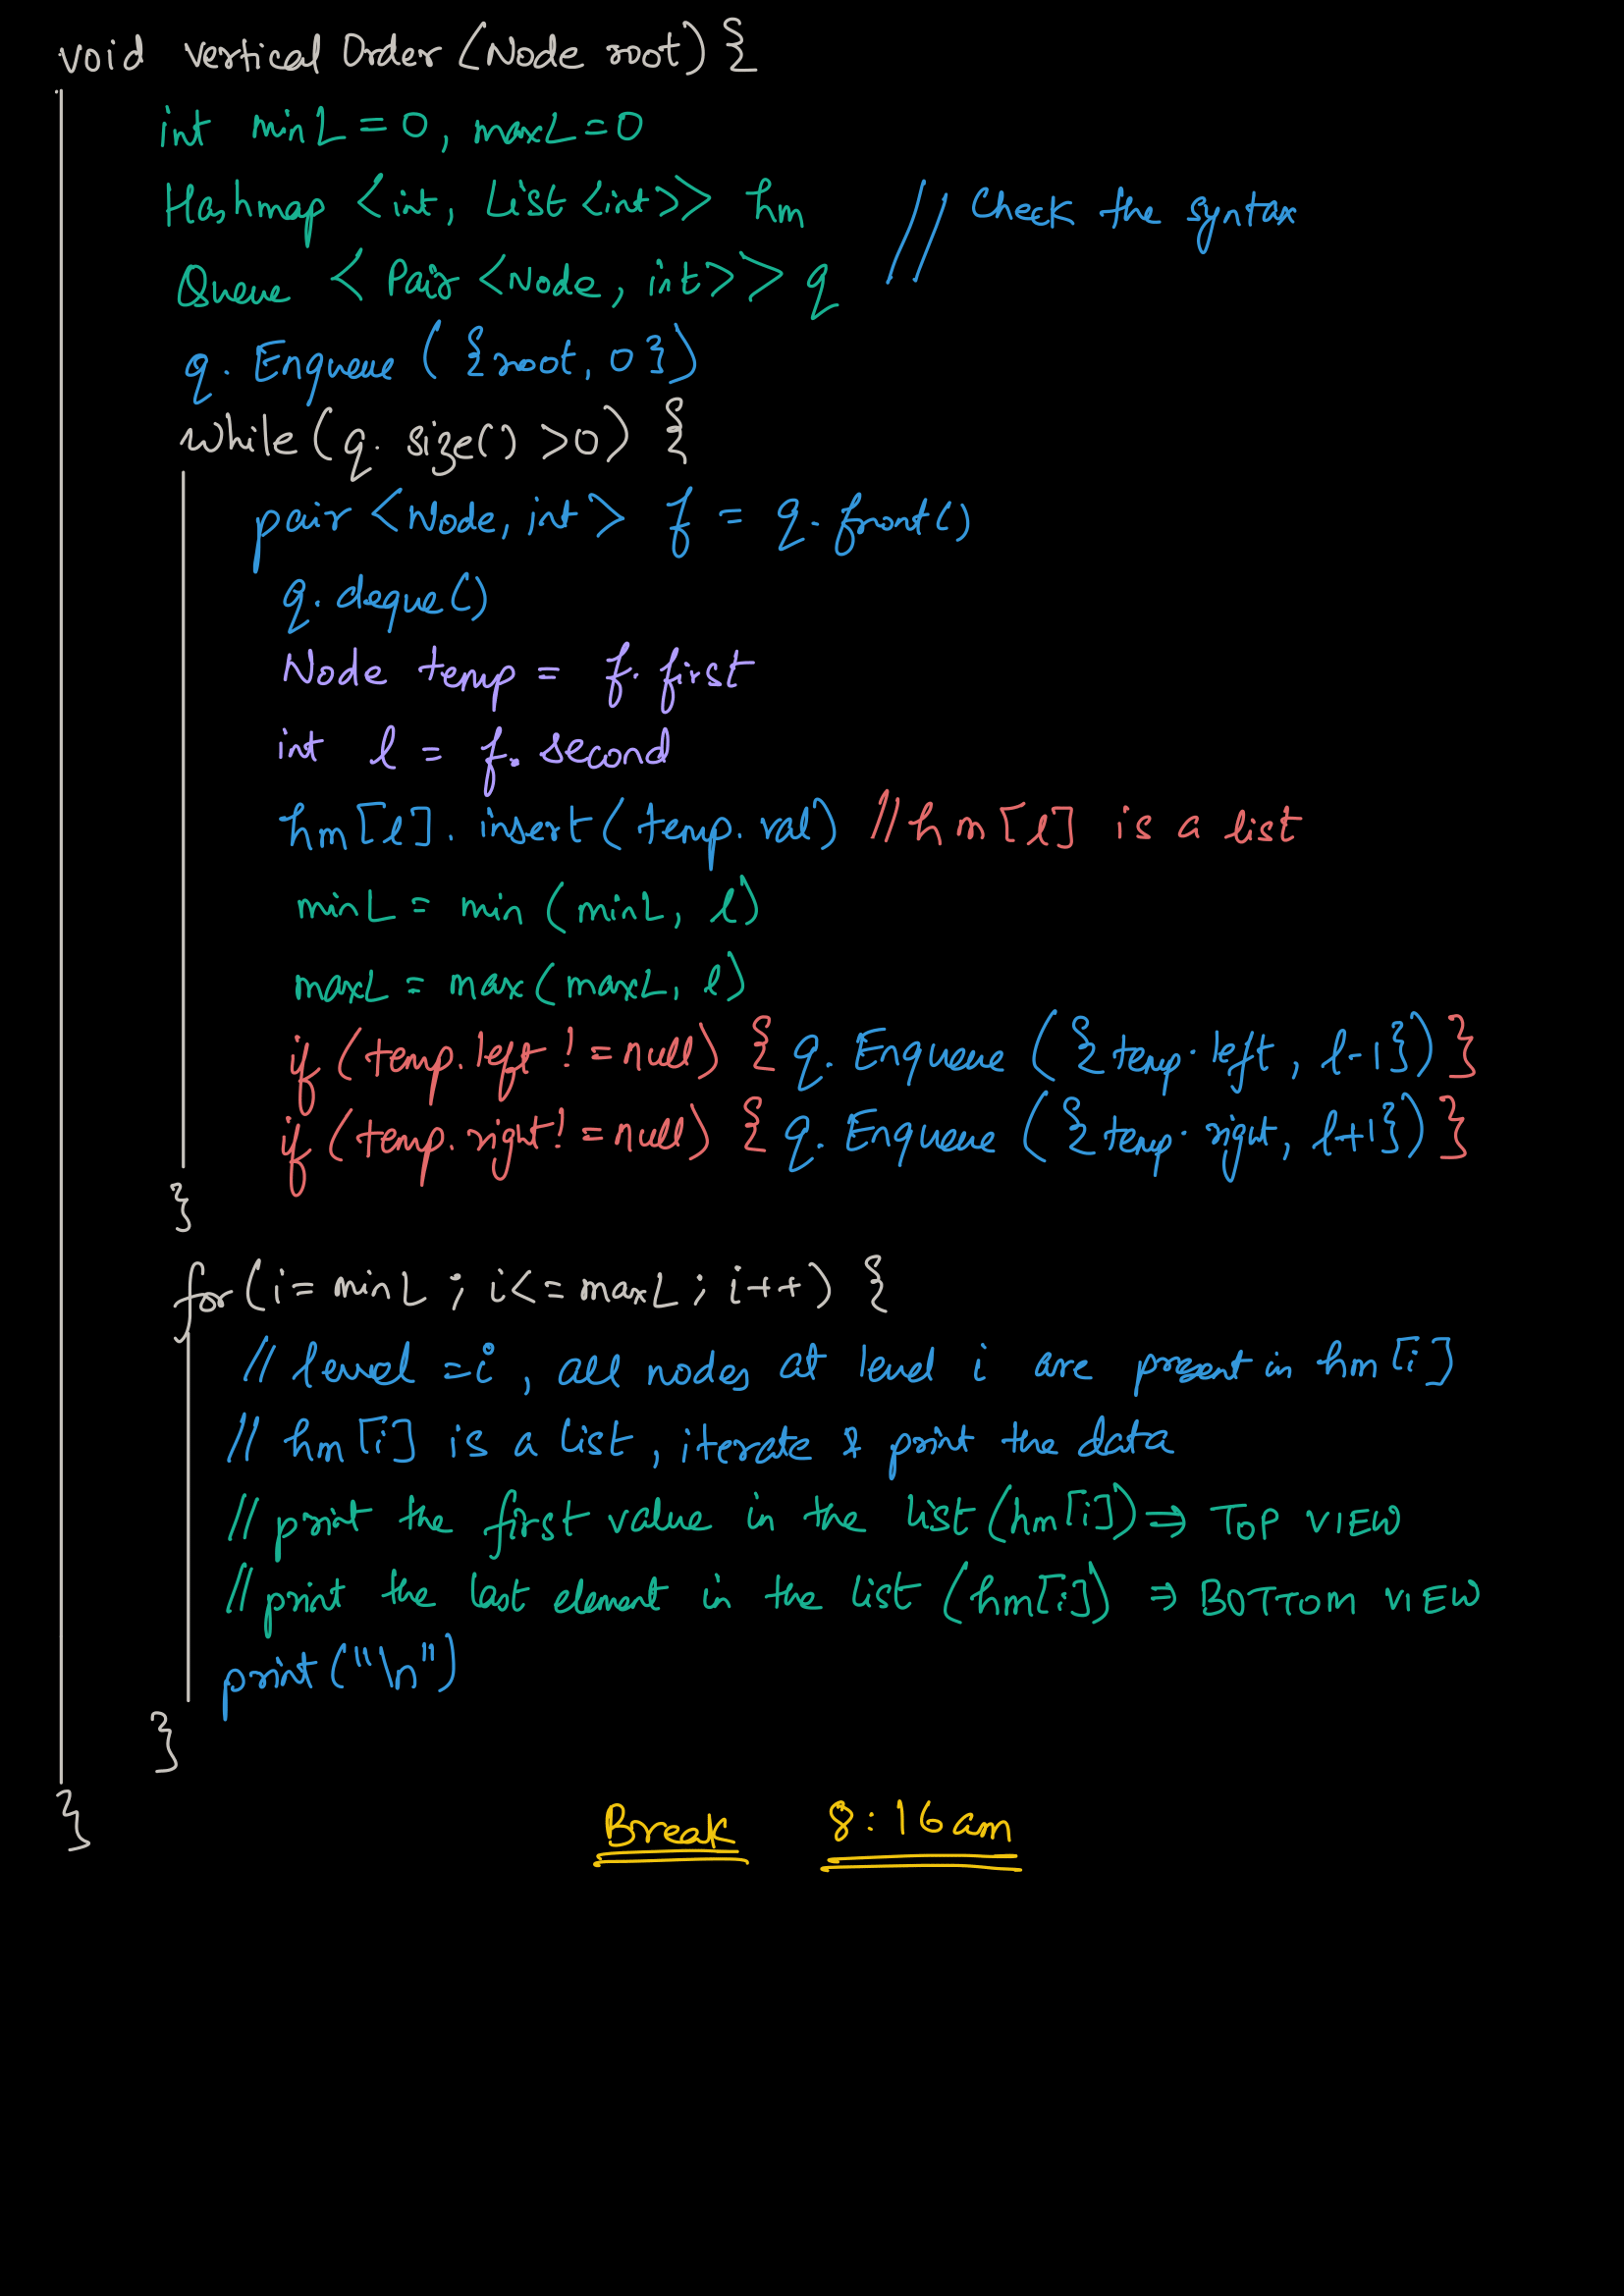 void vertical Order (Node root) {
int minL = 0, maxL = 0
Hashmap <int, List <int>> hm
// Check the syntax
Queue < Pair <Node, int>> q
q. Enqueue ( {root, 0 })
while (q. size() >0) {
pair <Node, int> f = q. front()
q. deque()
Node temp = f. first
int l = f. second
hm [l]. insert (temp. val) // hm [l] is a list
minL = min (minL, l)
maxL = max (maxL, l)
if (temp. left != null) { q. Enqueue ({temp. left, l-1}) }
if (temp. right != null) { q. Enqueue ({temp. right, l+1}) }
}
for (i = minL ; i <= maxL ; i++) {
// level = i, all nodes at level i are present in hm [i]
// hm [i] is a list, iterate & print the data
// print the first value in the list (hm [i]) ⇒ TOP VIEW
// print the last element in the list (hm[i]) ⇒ BOTTOM VIEW
print ("\n")
}
}
Break 8:16 am